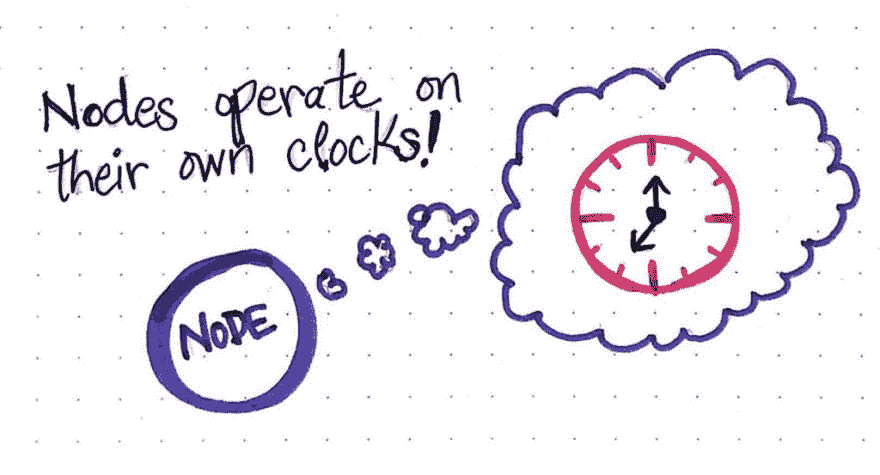 Nodes operate on
their own clocks!
NODE